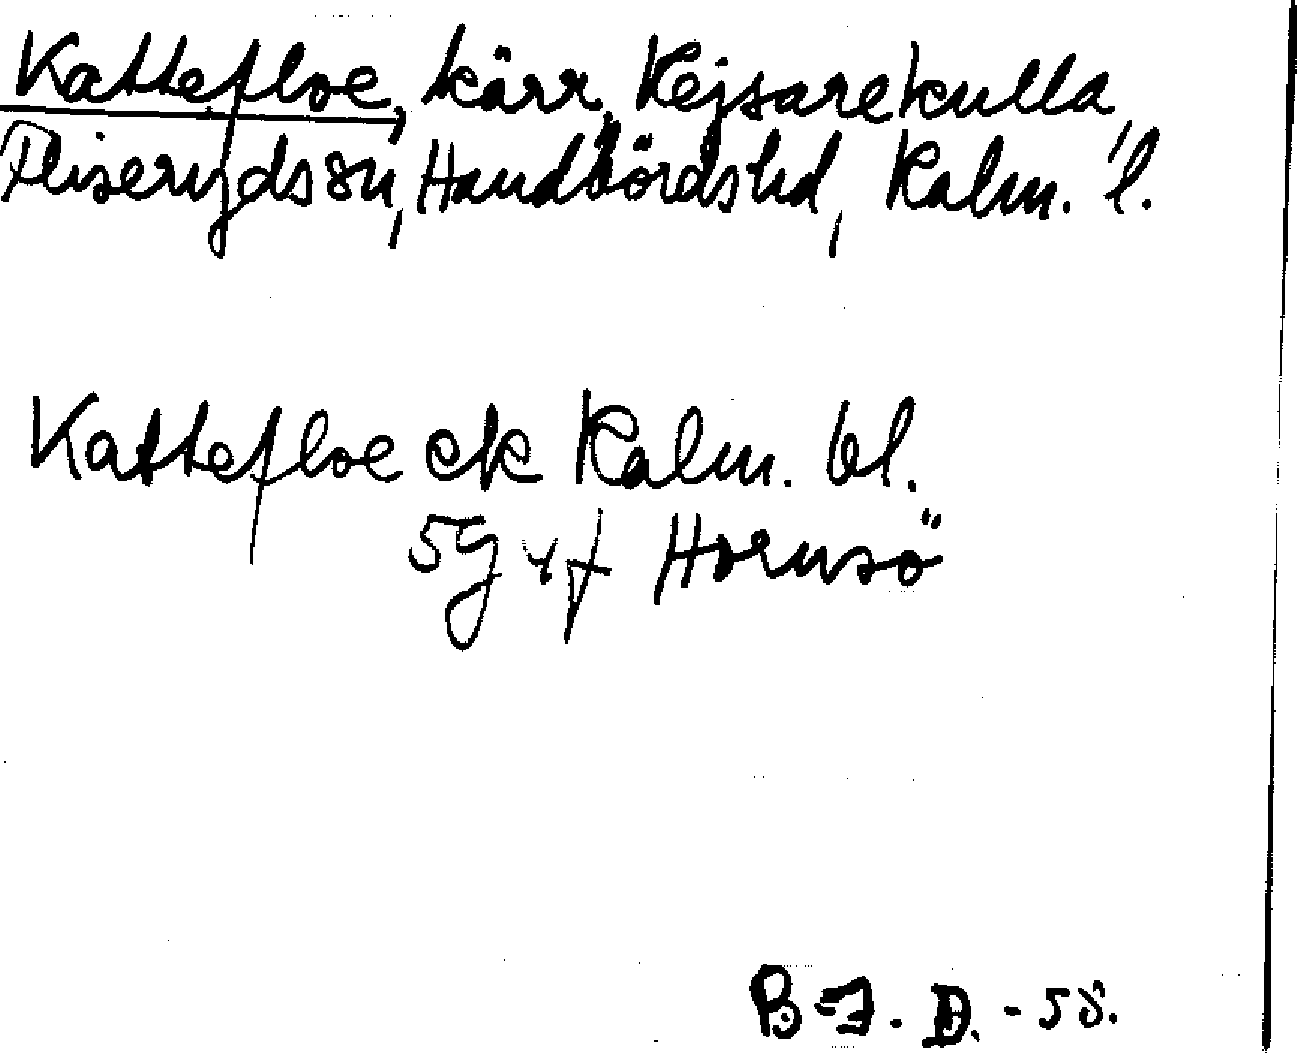 Kattefloe, kärr, Kejsarekulla,
Fliseryds sn, Handbörds hd, Kalm. l.
Kattefloe ek Kalm. bl.
5g Hornsö
B-J. D. - 58.